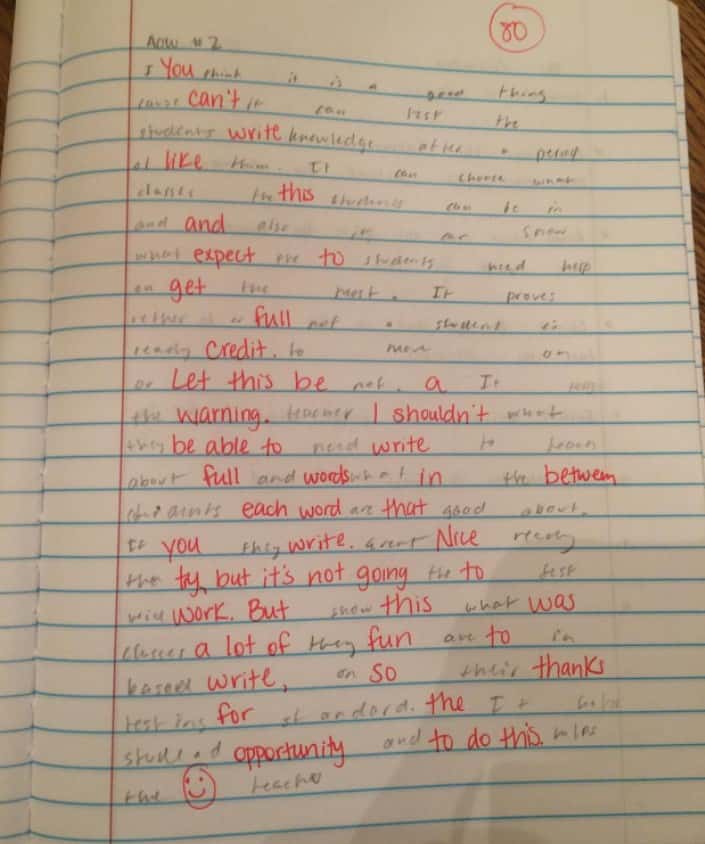 80
AOW #2
I You think it is a good thing
cause can't it can test the
students write knowledge after a period
of like them. It can choose what
classes the this students can be in
and and also it can show
what expect are to students need help
on get the most. It proves
rether is or full not a student is
ready credit. to move on
or Let this be not. a It
the warning. teacher I shouldn't what
they be able to need write to learn
about full and words what in the between
each word are that good about.
If you they write. aren't Nice ready
the try, but it's not going the to test
will work. But show this what was
classes a lot of they fun are to in
based write, on so their thanks
testing for standard. the It helps
student opportunity and to do this. helps
the teacher